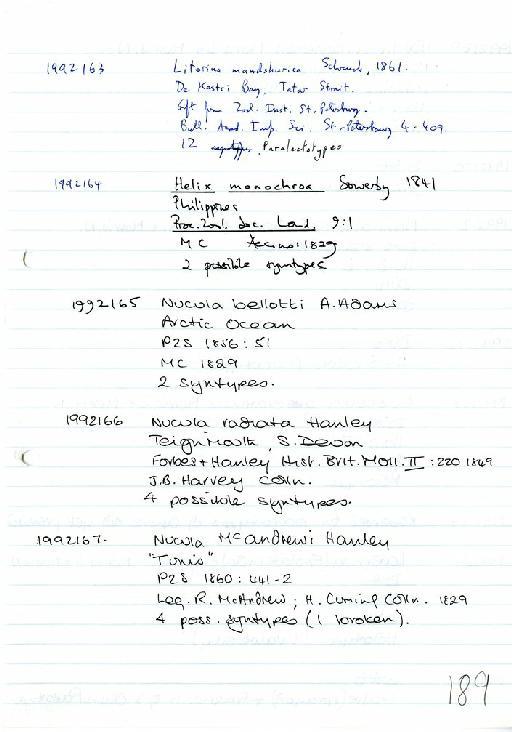 1992163 Litorina mandshurica Schrenck, 1861.
De Kastri Bay, Tatar Strait.
Gift from Zool. Inst. St. Petersburg.
Bull. Acad. Imp. Sci. St. Petersburg 4 - 409
12 Paralectotypes
1992164 Helix monochroa Sowerby 1841
Philippines
Proc. Zool. Soc. Lond. 9:1
MC 1829
2 possible syntypes
1992165 Nucula bellotti A. Adams
Arctic Ocean
PZS 1856: 51
MC 1829
2 syntypes.
1992166 Nucula radiata Hanley
Teignmouth, S. Devon
Forbes + Hanley Hist. Brit. Moll. II: 220 1849
J.B. Harvey Colln.
4 possible syntypes.
1992167. Nucula McAndrewi Hanley
"Tunis"
PZS 1860: 441-2
Leg. R. McAndrew; H. Cuming Colln. 1829
4 poss. syntypes (1 broken).
189